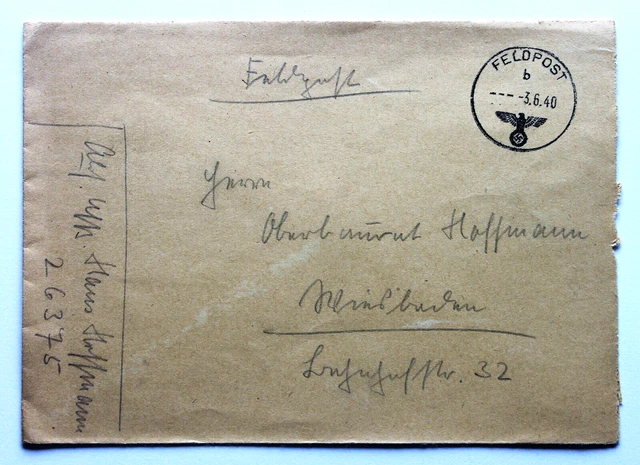 Feldpost
FELDPOST
b
--- -3.6.40
Herrn
Oberbaurat Hoffmann
Wiesbaden
Bahnhofstr. 32
Abs. Uffz. Hans Hoffmann
26375